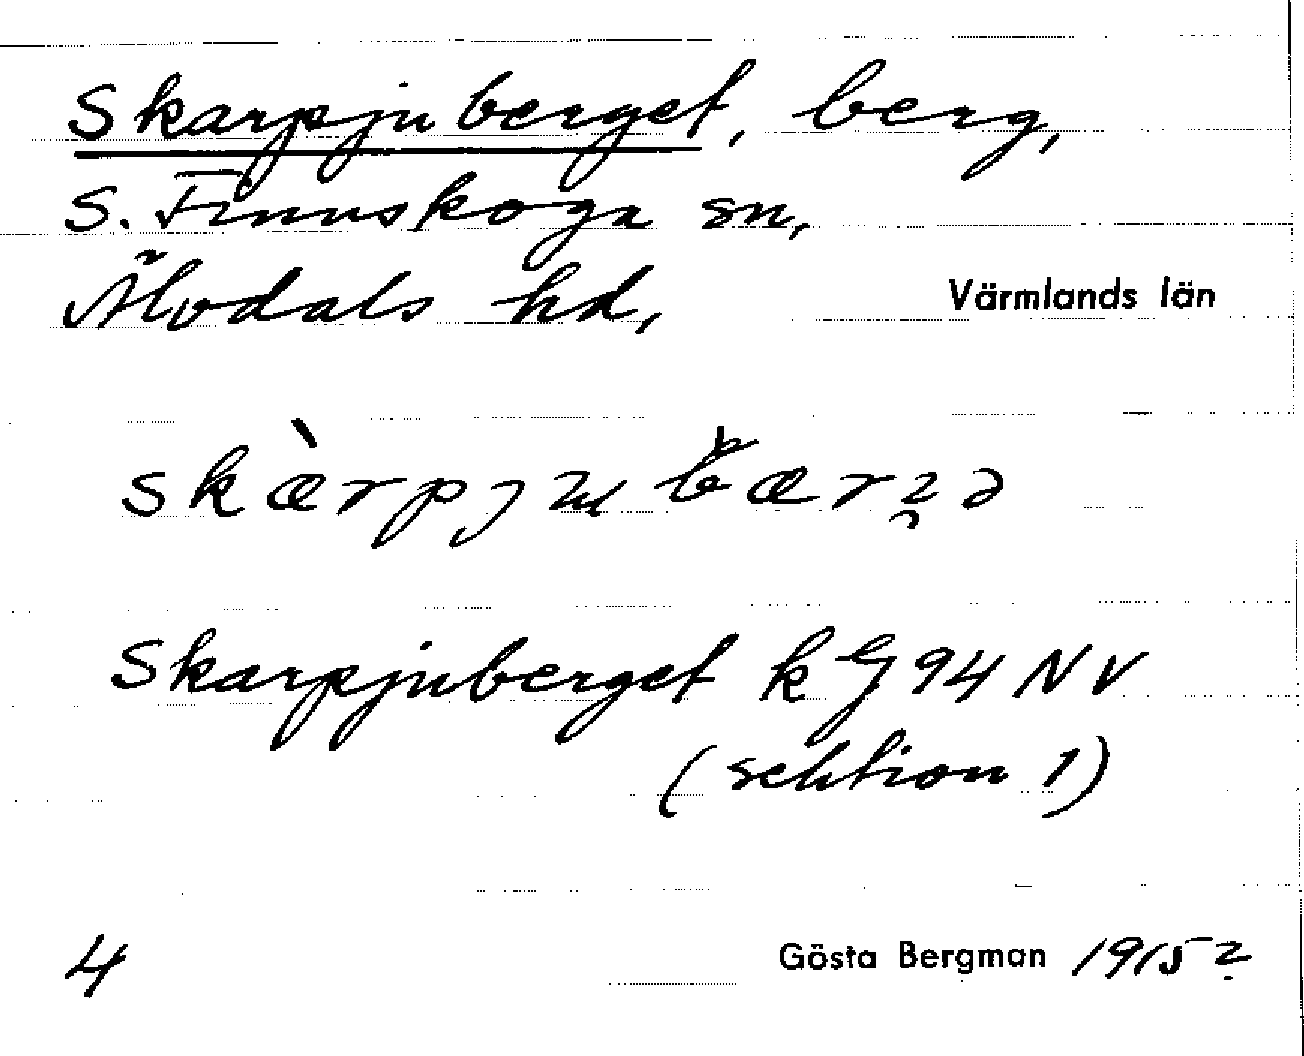 Skarpjuberget, berg,
S. Finnskoga sn,
Älvdals hd, Värmlands län
Skarpjuberget kG 94 NV
(sektion 1)
4 Gösta Bergman 1915?